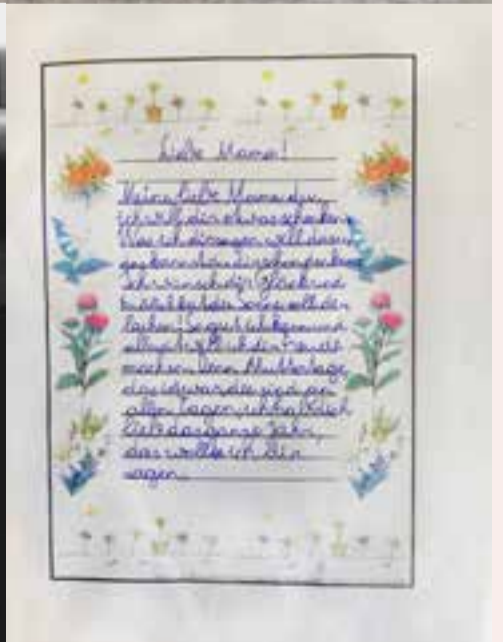 Liebe Mama!
Meine liebe Mama du,
ich will dir etwas schenken.
Was ich dir sagen will das
kannst du dir schon denken
Ich wünsch dir Glück und
die Sonne soll dir
lachen! So gut ich kann und
allezeit will ich dir Freude
machen. Denn Muttertage
das ist wahr die sind an
allen Tagen, ich hab dich
lieb das ganze Jahr,
das wollte ich dir
sagen.